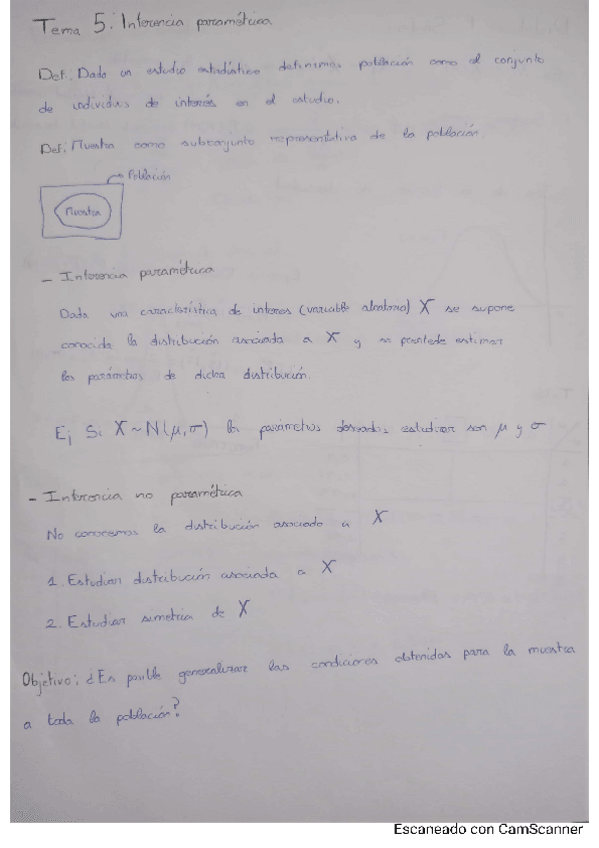 Tema 5: Inferencia paramétrica
Def: Dado un estudio estadístico definimos población como el conjunto
de individuos de interés en el estudio.
Def: Muestra como subconjunto representativo de la población.
Población
Muestra
- Inferencia paramétrica
Dada una característica de interes (variable aleatoria) X se supone
conocida la distribución asociada a X y se pretede estimar
los parámetros de dicha distribución.
Ej Si X ~ N(μ, σ) los parámetros deseados estudiar son μ y σ
- Inferencia no paramétrica
No conocemos la distribución asociada a X
1. Estudiar distribución asociada a X
2. Estudiar simetría de X
Objetivo: ¿Es posible generalizar las condiciones obtenidas para la muestra
a toda la población?
Escaneado con CamScanner